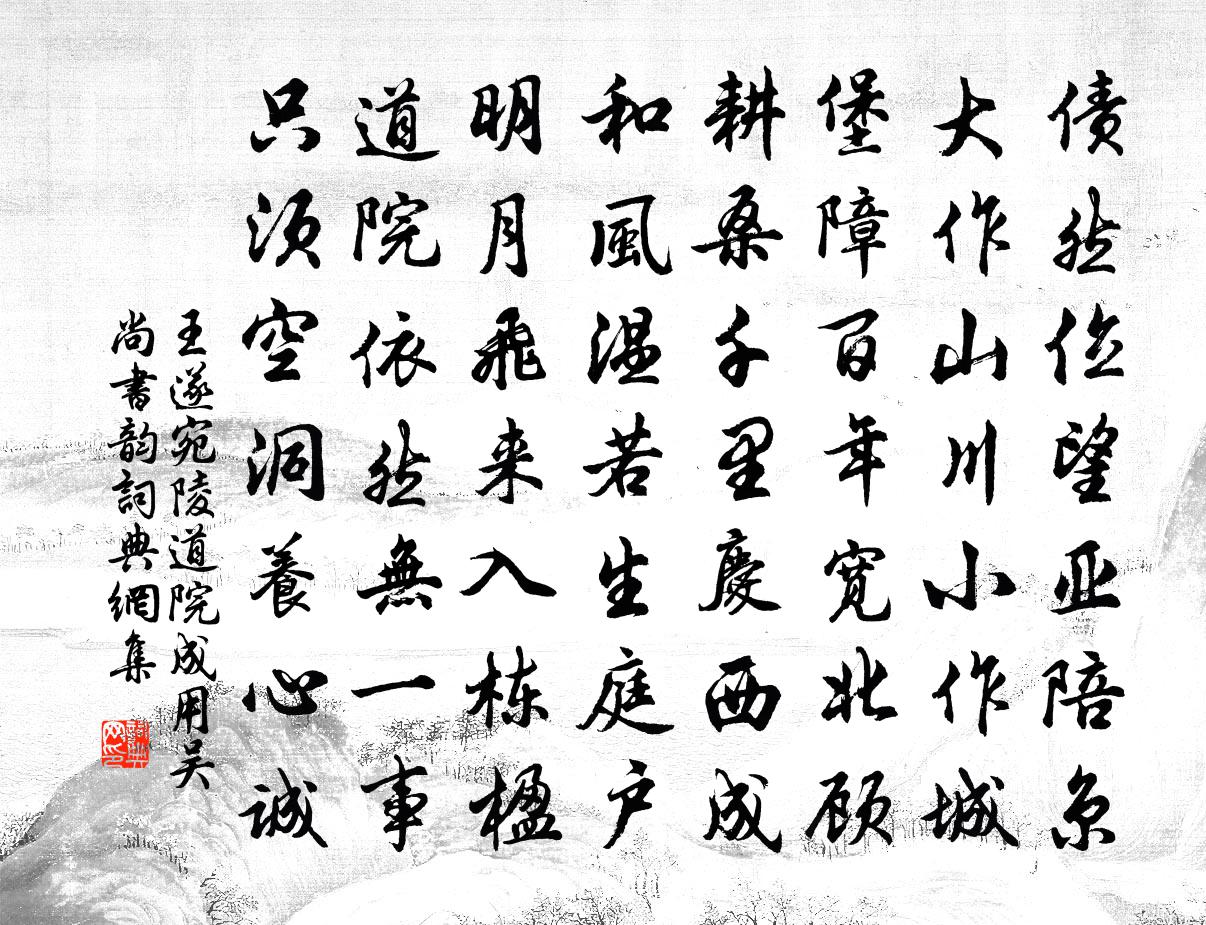 债然俭望亚陪京
大作山川小作城
堡障百年寬北顾
耕桑千里慶西成
和風温若生庭户
明月飛来入栋楹
道院依然無一事
只须空洞養心诚
王遂宛陵道院成用吴
尚書韵詞典網集